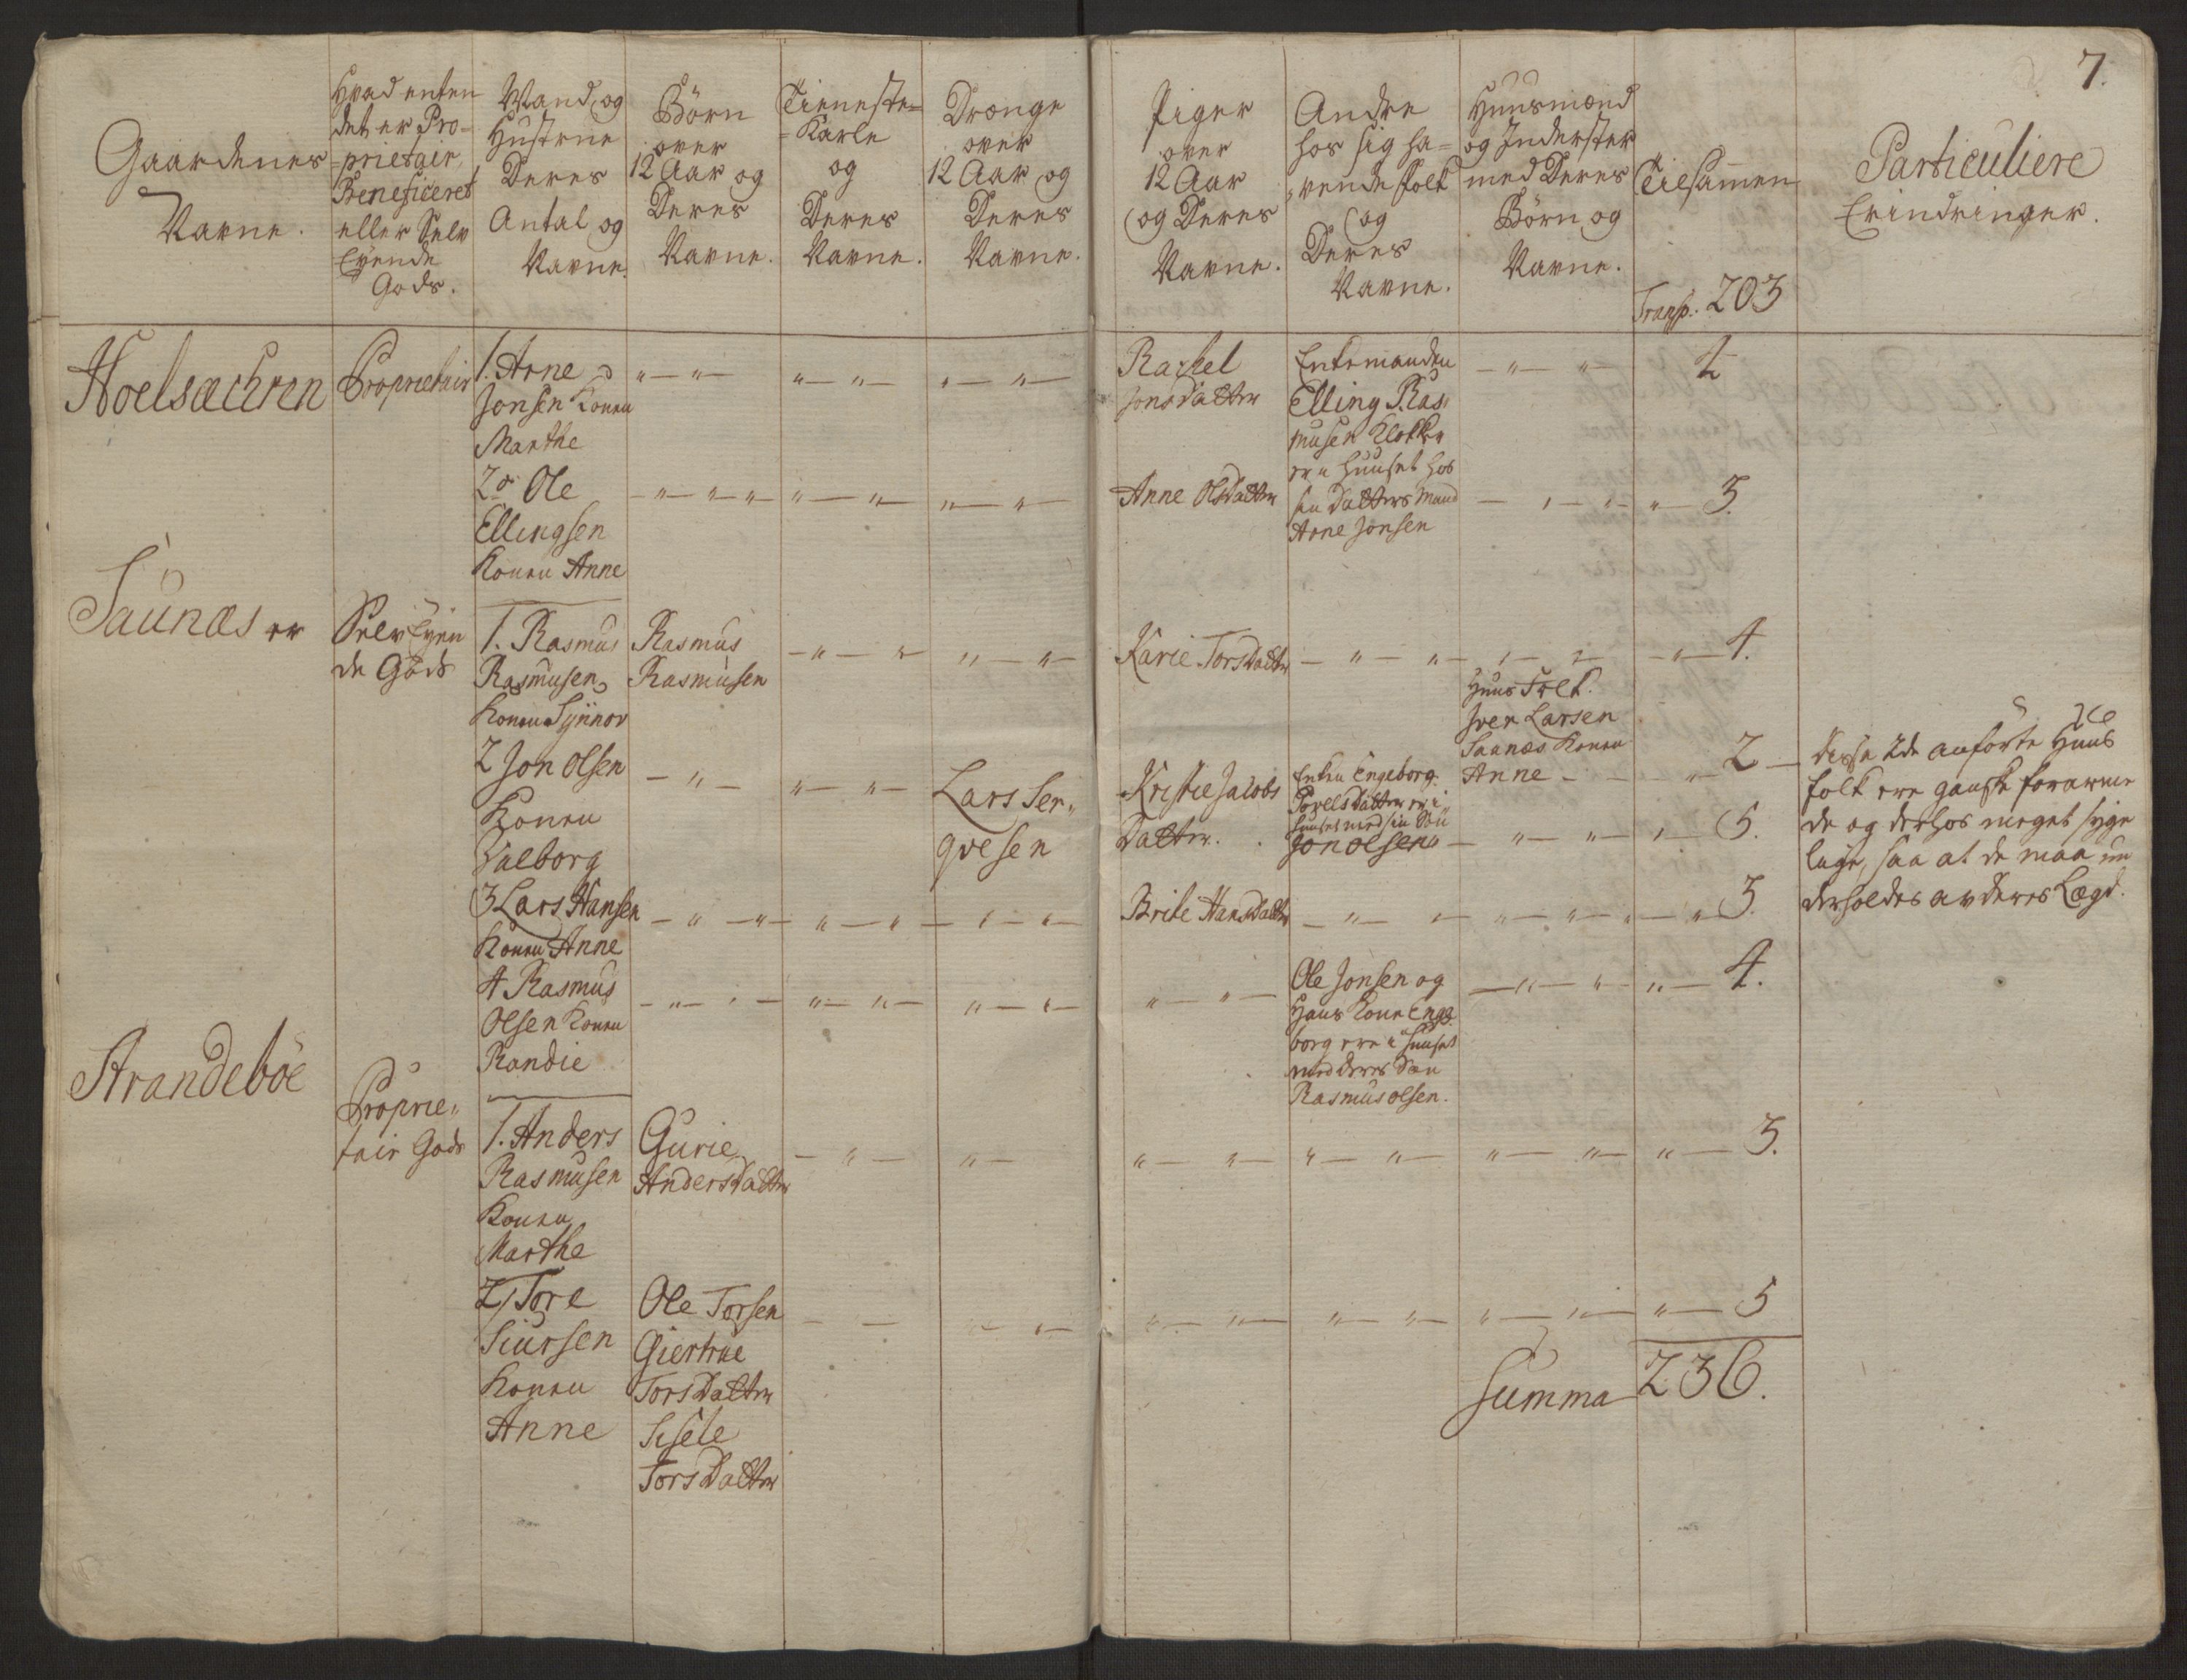 7.
Gaardenes
Navne.
Hvad enten
det er Pro-
=prietair,
Beneficeret
eller Selv
Eyende
Gods.
Mand og
Hustrue
Deres
Antal og
Navne.
Börn
over
12 Aar og
Deres
Navne.
Tieneste=
=Karle
og
Deres
Navne.
Drænge
over
12 Aar og
Deres
Navne.
Piger
over
12 Aar
og Deres
Navne.
Andre
hos sig ha=
vende folk
og
Deres
Navne.
Huusmænd
og Inderster
med Deres
Börn og
Navne.
Tilsamen
Transp: 203
Particuliere
Erindringer.
Hoelsæthren
Proprietair
1. Arne
Jonsen Konen
Marthe
Rachel
Jonsdatter
Enkemanden
Elling Ras,
musen Klokker
er i huuset hos
sin Datters Mand
Arne Jonsen
4
2. Ole
Ellingsen
Konen Anne
Anne Olsdatter
3.
Saunæs er
Selv Eyen
de Gods
1. Rasmus
Rasmusen
Konen Synnov
Rasmus
Rasmusen
Karie Torsdatter
4.
Huus Folk.
Iver Larsen
Saunæs Konen
Anne
2
Disse 2de anförte Huus
folk ere ganske forarme
de og derhos meget syge
lige, saa at de maa un
derholdes av deres Lægd.
2 Jon Olsen
Konen
Valborg
Lars Ser,,
qvesen
Kristie Jacobs
Datter.
Enken Engeborg
Povelsdatter er i
huuset med sin Sön
Jon olsen
5.
3 Lars Hansen
Konen Anne
Brite Hansdatter
3.
4 Rasmus
Olsen Konen
Randie
Ole Jonsen og
Hans Kone Enge
borg ere i huuset
med deres Sön
Rasmus olsen.
4.
Strandeböe
Proprie,,
tair Gods
1. Anders
Rasmusen
Konen
Marthe
Gurie
Andersdatter
3.
2, Tore
Siursen
Konen
Anne
Ole Torsen
Giertrue
Torsdatter
Sisele
Torsdatter
5
Summa 236.